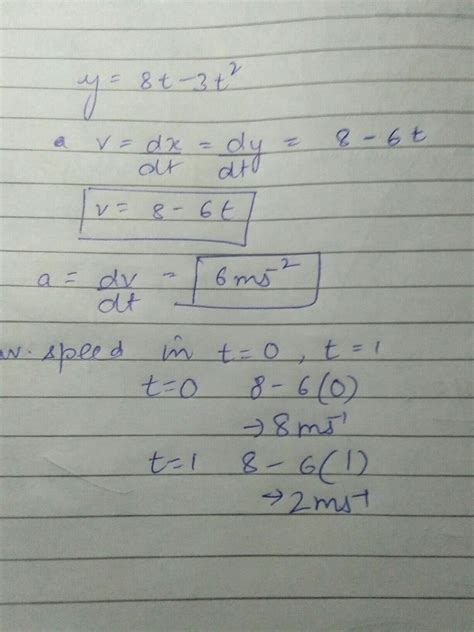 y = 8t - 3t²
a v = dx/dt = dy/dt = 8 - 6t
v = 8 - 6t
a = dv/dt = 6ms²
av. speed in t=0, t=1
t=0 8 - 6(0)
→ 8ms⁻¹
t=1 8 - 6(1)
→ 2ms⁻¹